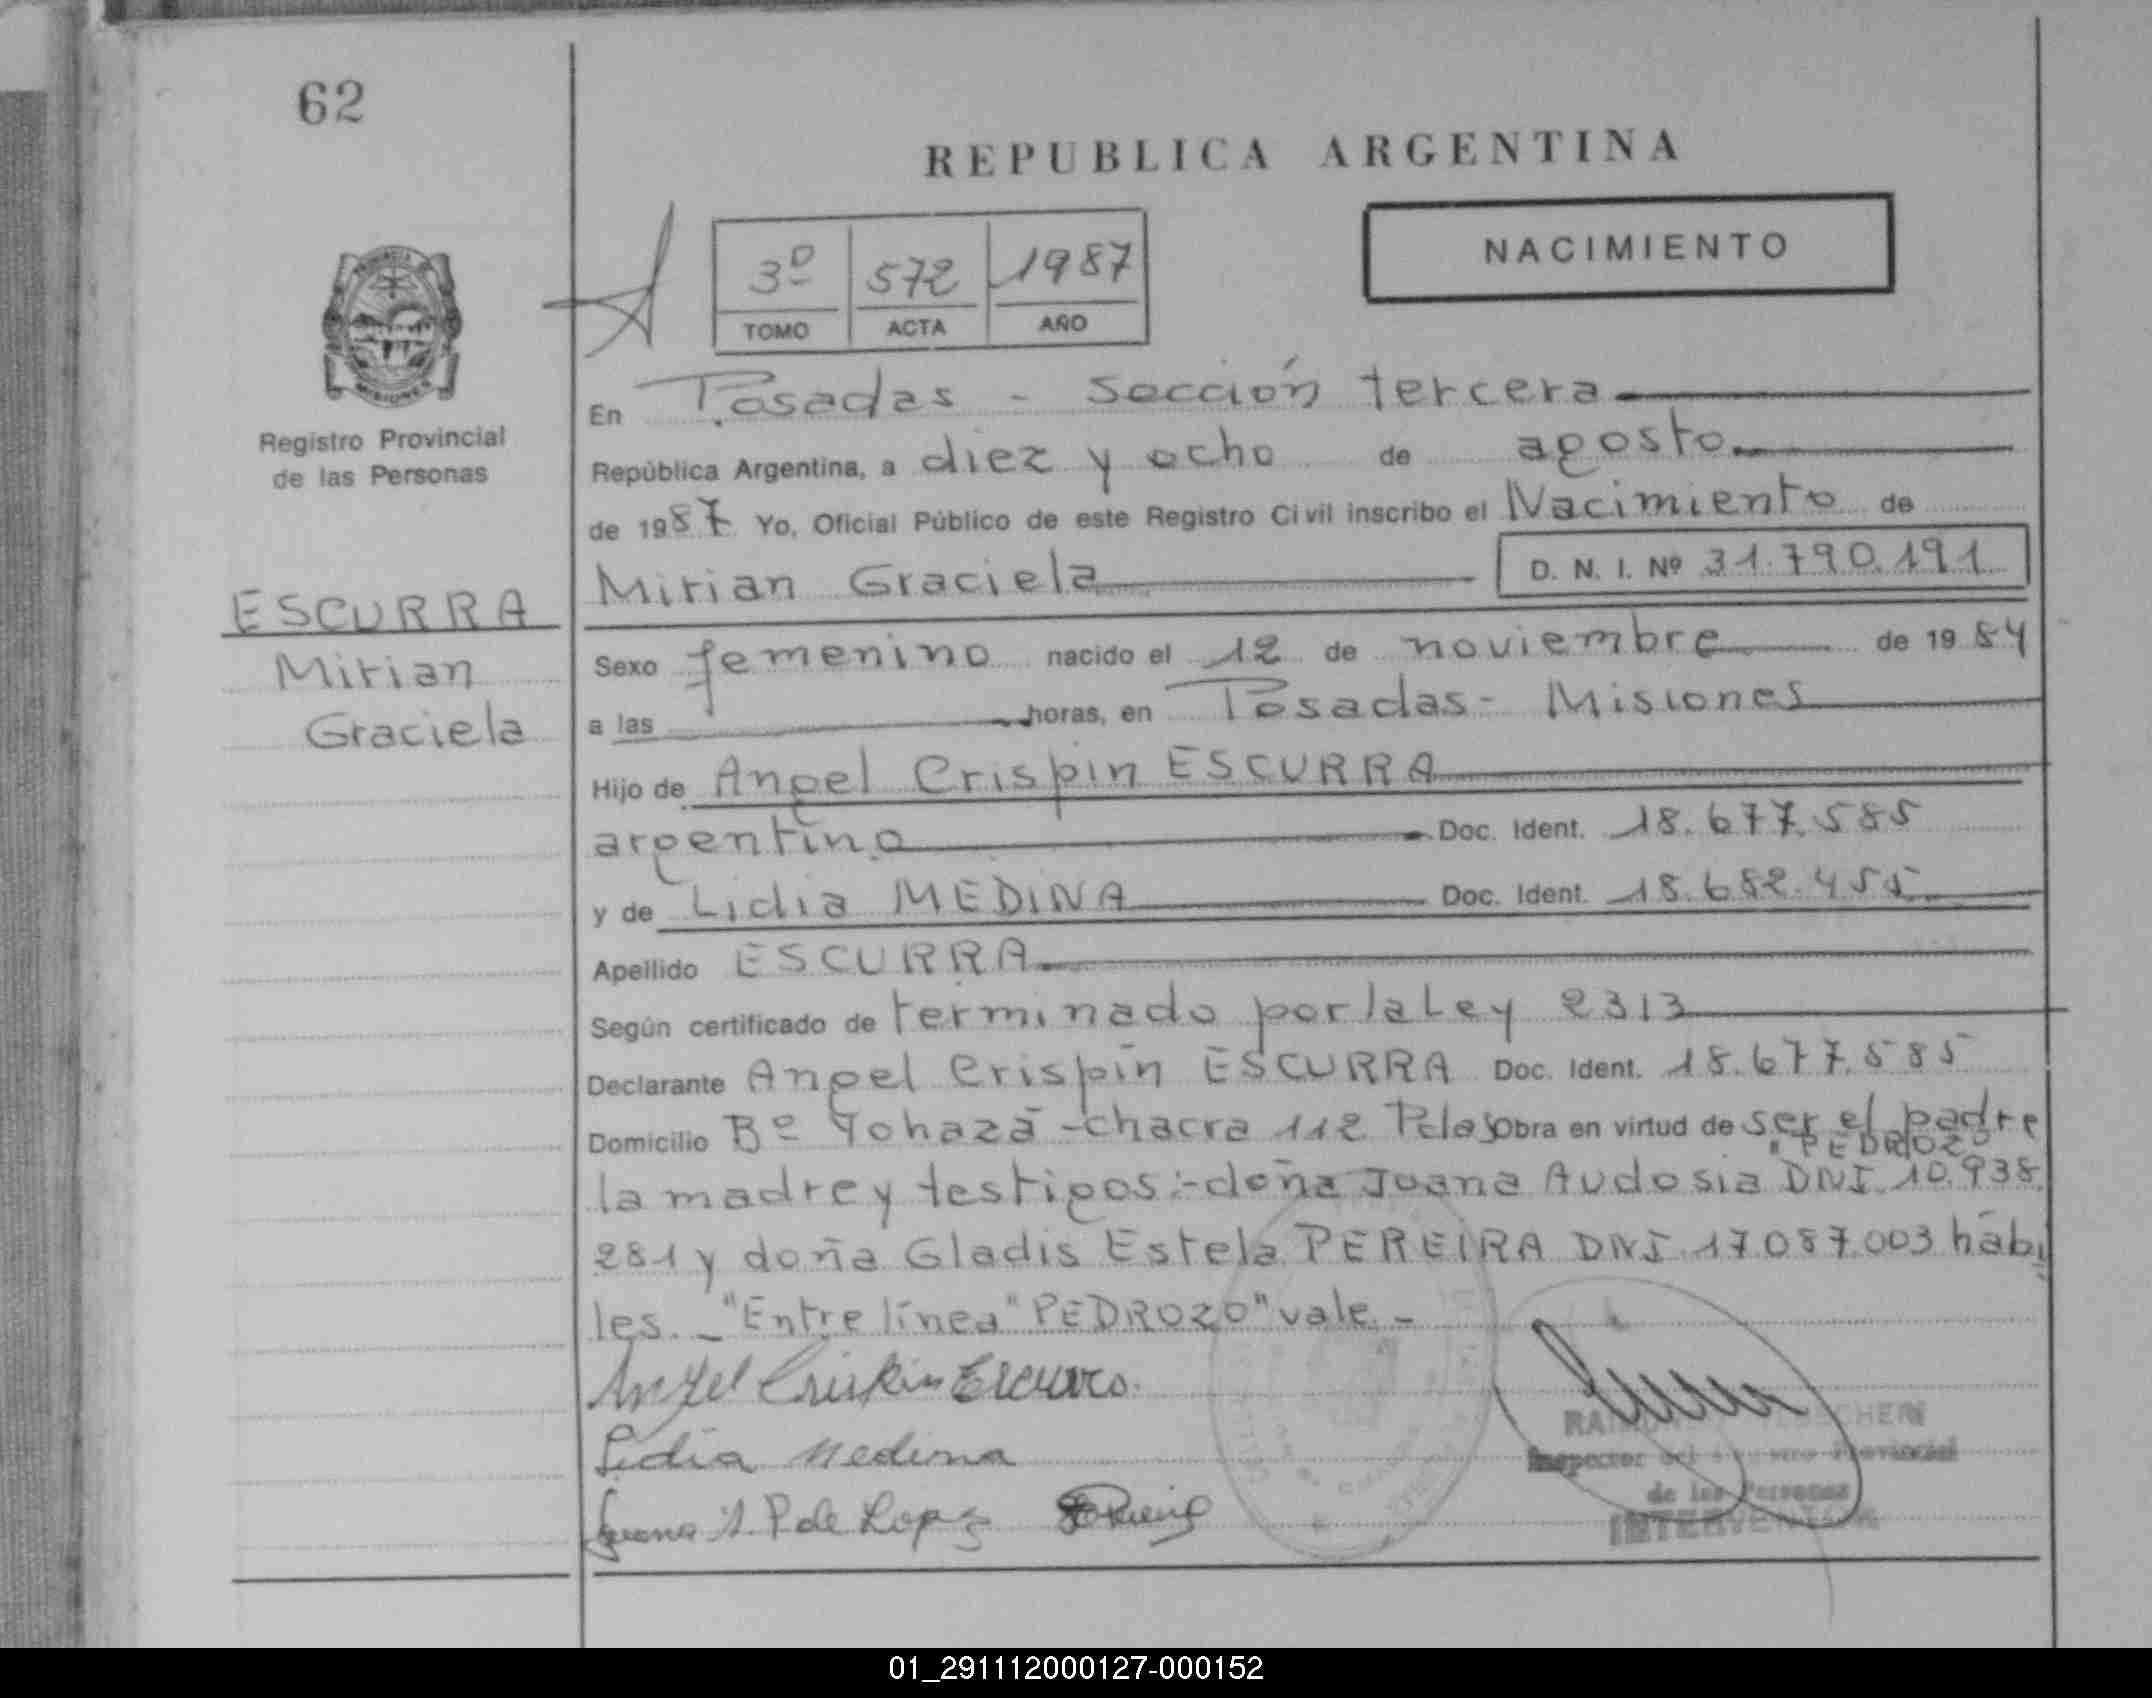 62
REPUBLICA ARGENTINA
NACIMIENTO
3º 572 1987
TOMO ACTA AÑO
MISIONES
Registro Provincial
de las Personas
ESCURRA
Mirian
Graciela
En Posadas - Sección tercera
República Argentina, a diez y ocho de agosto
de 1987 Yo, Oficial Público de este Registro Civil inscribo el Nacimiento de
Mirian Graciela D. N. I. Nº 31.790.191
Sexo femenino nacido el 12 de noviembre de 1984
a las horas, en Posadas - Misiones
Hijo de Angel Crispin ESCURRA
argentino Doc. Ident. 18.677.585
y de Lidia MEDINA Doc. Ident. 18.682.455
Apellido ESCURRA
Según certificado de terminado por la Ley 2313
Declarante Angel Crispin ESCURRA Doc. Ident. 18.677.585
Domicilio Bº Yohazá - chacra 112 Pdas Obra en virtud de ser el padre
" PEDROZO
la madre y testigos:- doña Juana Audosia DNI 10.938.
281 y doña Gladis Estela PEREIRA DNI 17.087.003 hábi
les. - "Entre línea" PEDROZO" vale -
Angel Crispin Escurra.
Lidia Medina
Juana A. P de Lopez
Inspector del Registro Provincial
de las Personas
INTERVENTOR
01_291112000127-000152